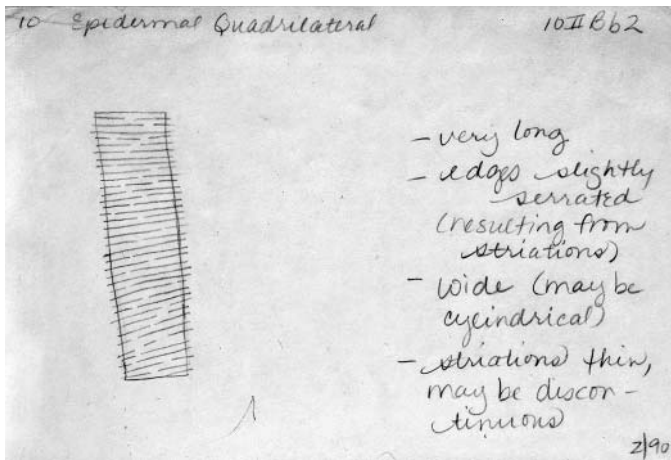 10 Epidermal Quadrilateral 10IIBb2
- very long
- edges slightly
serrated
(resulting from
striations)
- wide (may be
cylindrical)
- striations thin,
may be discon-
tinuous
2/90